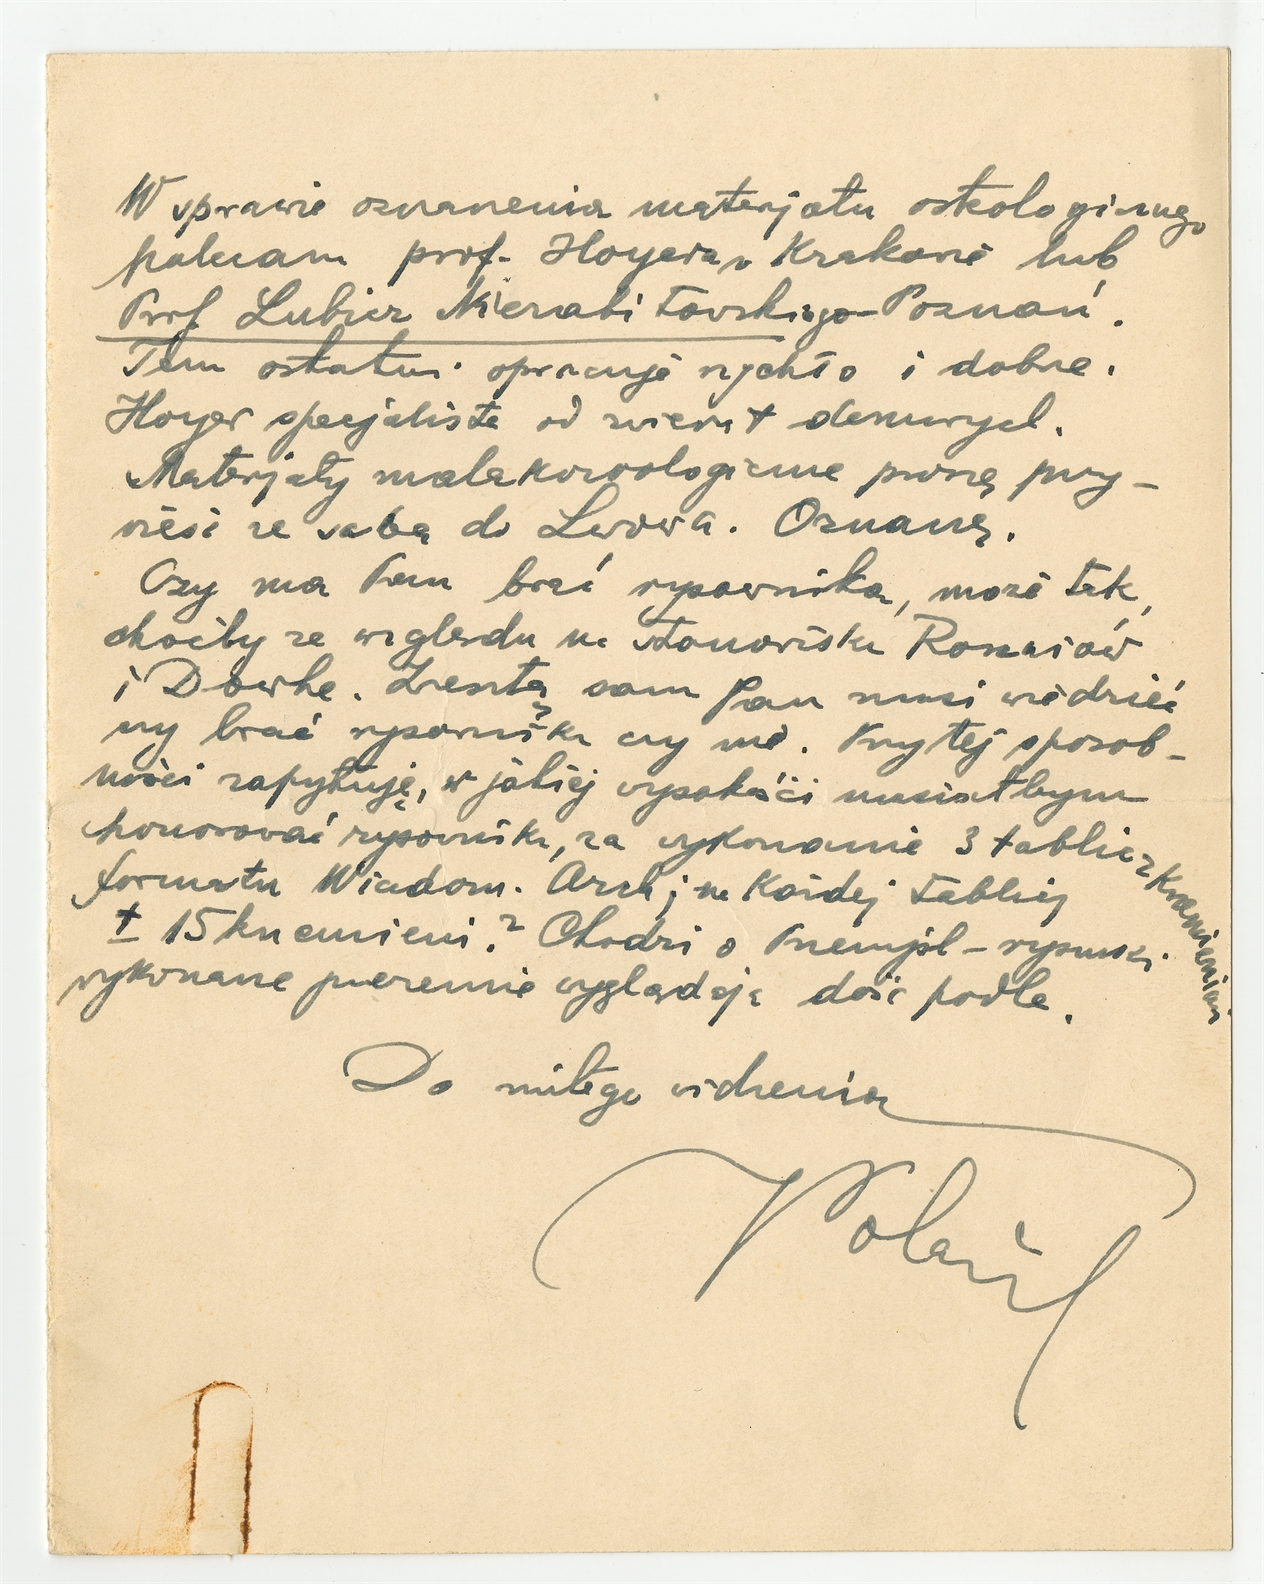 W sprawie oznaczenia materjału osteologicznego
polecam prof. Hoyera w Krakowie lub
Prof. Lubicz Niezabitowskiego - Poznań.
Ten ostatni opracuje rychło i dobrze.
Hoyer specjalista od zwierząt
Materjały malakozoologiczne proszę przy-
wieść ze sobą do Lwowa. Oznaczę.
Czy ma Pan brać rysownika, może tak,
choćby ze względu na stanowiska
i Zresztą sam Pan musi wiedzieć
czy brać rysownika czy nie. Przy tej sposob-
ności zapytuję, w jakiej wysokości musiałbym
honorować rysownika, za wykonanie 3 tablic z krzemieniami
formatu Wiadom. Arch; na każdej tablicy
± 15 krzemieni? Chodzi o Przemyśl - rysunki
wykonane przezemnie wyglądają dość podle.
Do miłego widzenia